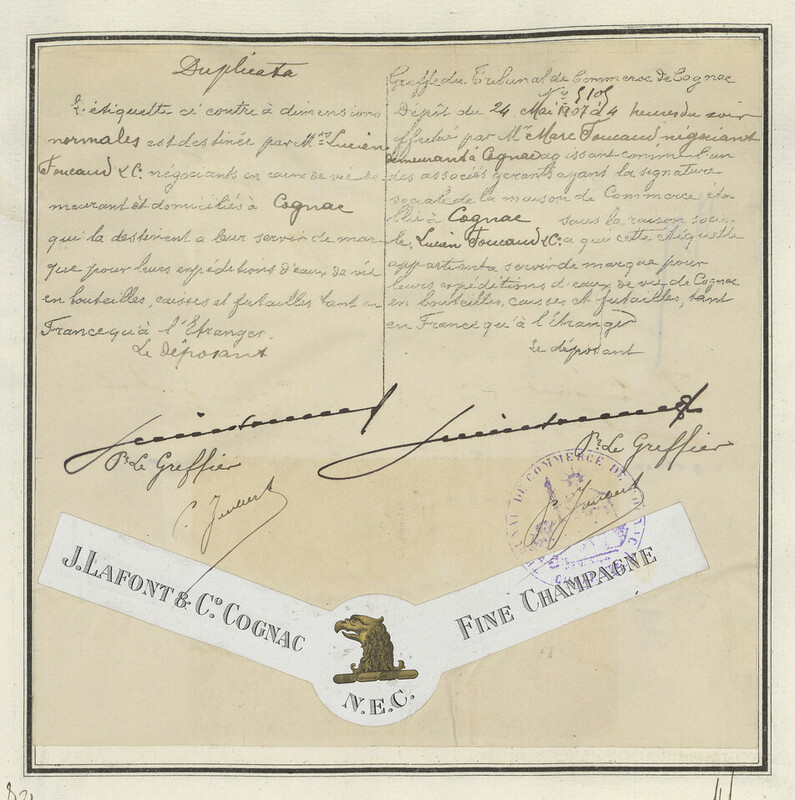 Duplicata
L'étiquette ci contre à dimensions
normales est destinée par Mrs Lucien
Foucaud & C. négociants en eaux de vie de
meurant et domiciliés à Cognac
qui la destinent à leur servir de mar
que pour leurs expéditions d'eaux de vie
en bouteilles, caisses et futailles tant en
France qu'à l'Etranger.
Le déposant
Pr Le Greffier
Greffe du Tribunal de Commerce de Cognac
No 5105
Dépôt du 24 Mai 1907 à 4 heures du soir
effectué par Mr Marc Foucaud, négociant
demeurant à Cognac agissant comme l'un
des associés gérants ayant la signature
sociale de la maison de Commerce éta
blie à Cognac sous la raison socia
le Lucien Foucaud & C. à qui cette étiquette
appartient à servir de marque pour
leurs expéditions d'eaux de vie de Cognac
en bouteilles, caisses et futailles, tant
en France qu'à l'Etranger
Le déposant
Pr Le Greffier
TRIBUNAL DE COMMERCE DE COGNAC
J. LAFONT & Co. COGNAC
FINE CHAMPAGNE
N.E.C.